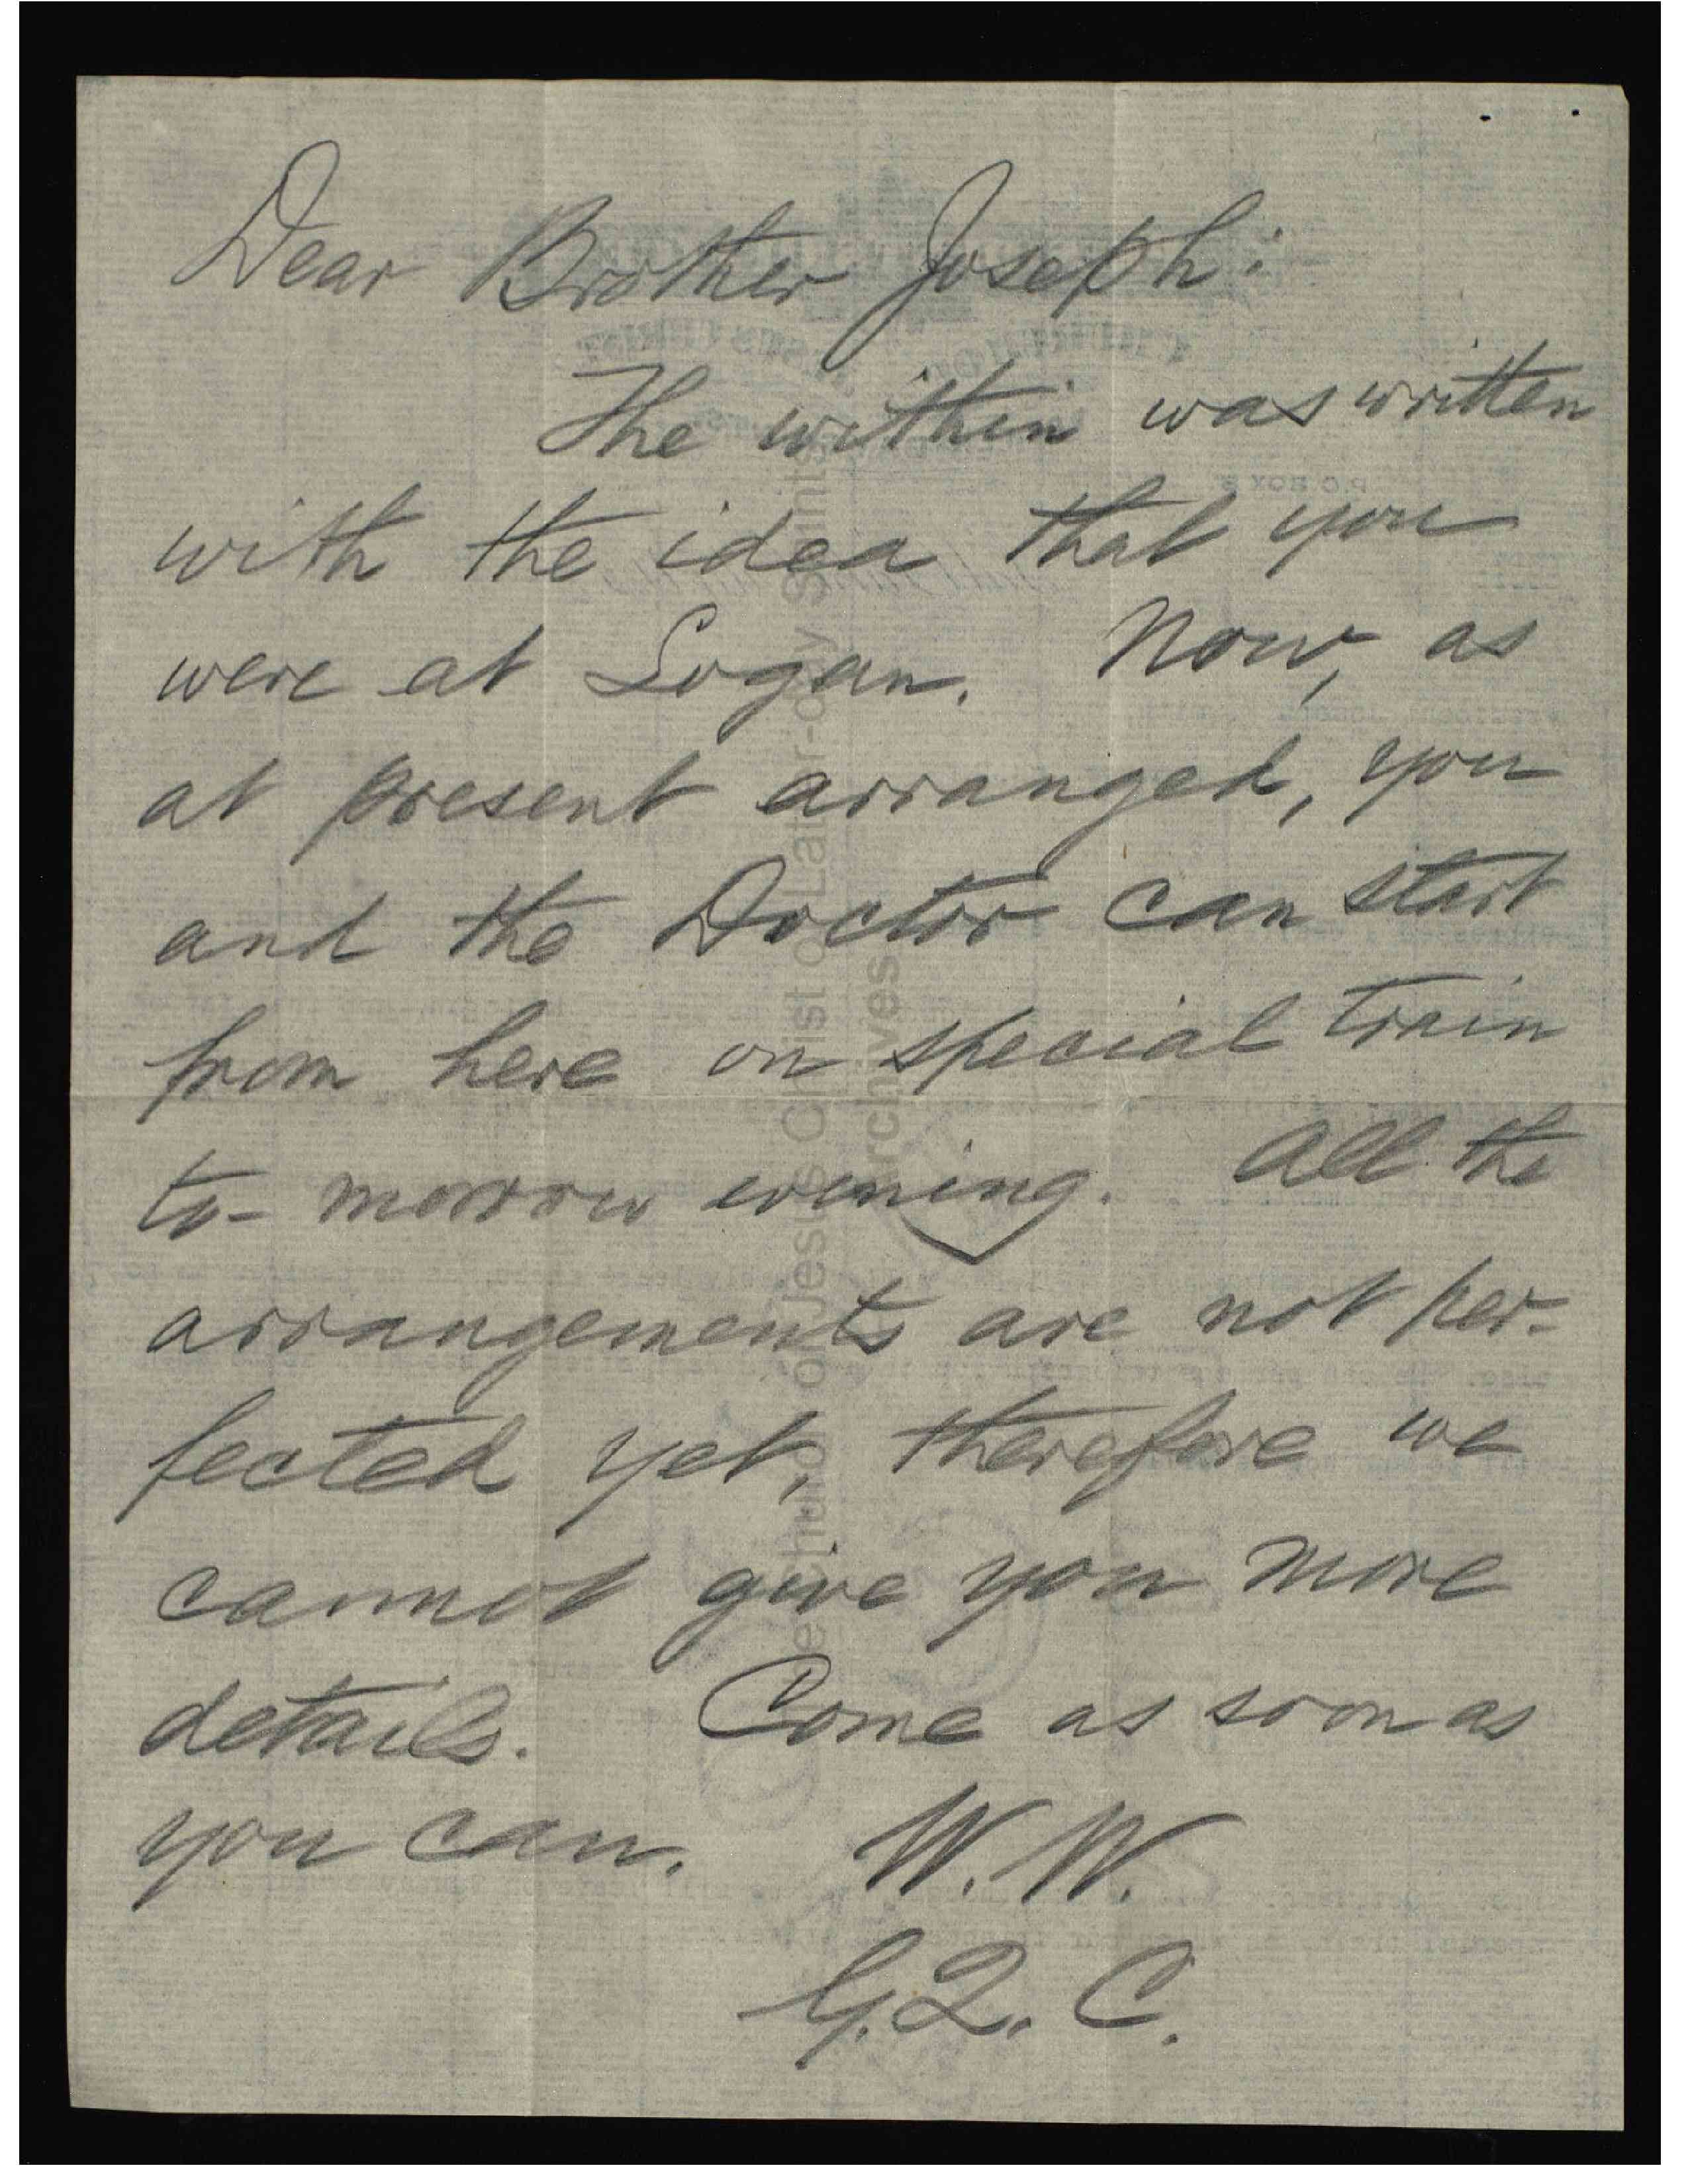 Dear Brother Joseph:
The within was written
with the idea that you
were at Logan. Now, as
at present arranged, you
and the Doctor can start
from here on special train
to-morrow evening. All the
arrangements are not per-
fected yet, therefore we
cannot give you more
details. Come as soon as
you can. W. W.
G. Q. C.